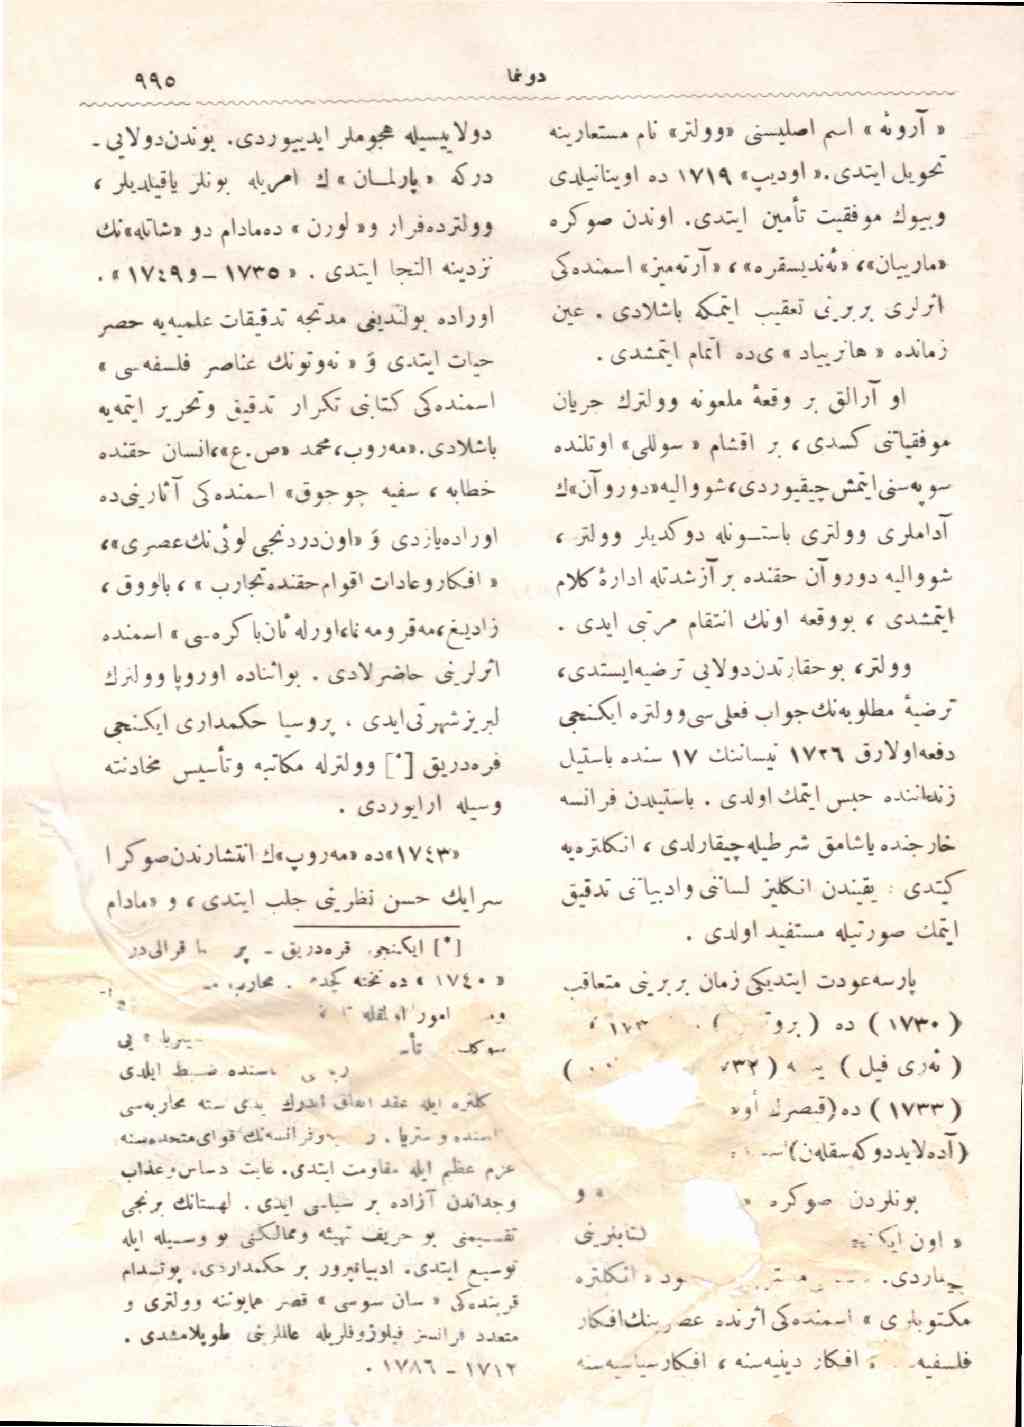 دونما
٩٩٥
« آروئه » اسم اصلیسنی «وولتر» نام مستعارینه
تحویل ایتدی. « اودیپ» ١٧١٩ ده اوینانیلدی
وبیوك موفقیت تأمین ایتدی. اوندن صوکره
«ماریان»، «ئەندیسقره»، «آرته‌میز» اسمنده‌کی
اثرلری بربرینی تعقیب ایتمکه باشلادی . عین
زمانده « هانریاد » ی‌ده اتمام ایتمشدی .
او آرالق بر وقعهٔ ملعونه وولترك جریان
موفقیاتنی کسدی ، بر اقشام « سوللی» اوتلنده
سوپه‌سنی‌ایتمش چیقیوردی، شووالیه «دوروآن»ك
آداملری وولتری باستونله دوکدیلر وولتر ،
شووالیه دوروآن حقنده بر آزشدتله ادارهٔ کلام
ایتمشدی ، بووقعه اونك انتقام مرتبی ایدی .
وولتر، بوحقارتدن‌دولایی ترضیه‌ایستدی،
ترضیهٔ مطلوبه‌نك جواب فعلی‌سی‌وولتره ایکنجی
دفعه‌اولارق ١٧٢٦ نیساننك ١٧ سنده باستیل
زنداننده حبس ایتمك اولدی . باستیلدن فرانسه
خارجنده یاشامق شرطیله‌چیقارلدی ، انکلتره‌یه
کیتدی : یقیندن انکلیز لساننی وادبیاتنی تدقیق
ایتمك صورتیله مستفید اولدی .
پارسه‌عودت ایتدیکی زمان بربرینی متعاقب
( ١٧٣٠ ) ده
( ئەری فیل )
( ١٧٣٣ ) ده (قیصرك
(آده‌لاید دوکه‌سقله‌ن)
بونلردن صوکره و
« اون ایکنجی کتابلرینی
« انکلتره
مکتوبلری » اسمنده‌کی اثرنده عصرینك‌افکار
فلسفیه افکار دینیه‌سنه ، افکارسیاسیه‌سنه
دولاییسیله هجوملر ایدییوردی. بوندن‌دولایی ـ
درکه « پارلمان » ك امریله بونلر یاقیلدیلر ،
وولترده‌فرار و« لورن » ده‌مادام دو «شاتله»نك
نزدینه التجا ایتدی . « ١٧٣٥ ـ و١٧٤٩ » .
اوراده بولندیغی مدتجه تدقیقات علمیه‌یه حصر
حیات ایتدی وَ « نه‌وتونك عناصر فلسفه‌سی »
اسمنده‌کی کتابنی تکرار تدقیق وتحریر ایتمه‌یه
باشلادی. «مه‌روپ، محمد «ص.ع»، انسان حقنده
خطابه ، سفیه چوجوق» اسمنده‌کی آثارینی‌ده
اوراده‌یازدی وَ «اون‌دردنجی لوئی‌نك‌عصری»،
« افکاروعادات اقوام‌حقنده‌تجارب » ، بابووق ،
زادیغ، مه‌قرومه‌غا، اورله‌ئان‌باکره‌سی» اسمنده
اثرلرینی حاضرلادی . بواثناده اوروپا وولترك
لبریزشهرتی‌ایدی . پروسیا حکمداری ایکنجی
فره‌دریق [*] وولترله مکاتبه وتأسیس مخادنته
وسیله ارایوردی .
«١٧٤٣»ده «مه‌روپ»ك انتشارندن‌صوکرا
سرایك حسن نظرینی جلب ایتدی ، و «مادام
[*] ایکنجی فره‌دریق ـ قرالی‌در
« ١٧٤٠ » ده تخته
سنده ضبط ایلدی
کلتره ایله عقد اتفاق ایدرك یدی سنه محاربه‌سی
وفرانسه‌نك قوای متحده‌سنه
عزم عظیم ایله مقاومت ایتدی. غایت دساس‌وعذاب
وجداندن آزاده بر سیاسی ایدی . لهستانك برنجی
تقسیمنی بو حریف تهیئه وممالکنی بو وسیله ایله
توسیع ایتدی. ادبیاتپرور بر حکمداردی. پوتسدام
قربنده‌کی « سان سوسی » قصر همایوننه وولتری و
متعدد فرانسز فیلوزوفلریله عالملرینی طوپلامشدی .
١٧١٢ ـ ١٧٨٦ .